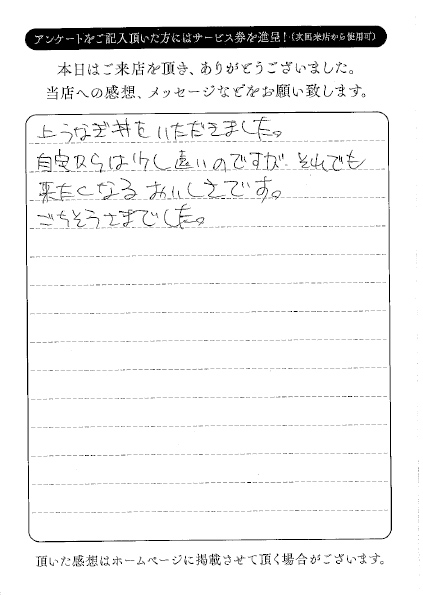 アンケートをご記入頂いた方にはサービス券を進呈！(次回来店から使用可)
本日はご来店を頂き、ありがとうございました。
当店への感想、メッセージなどをお願い致します。
上うなぎ丼をいただきました。
自宅からは少し遠いのですが、それでも
来たくなるおいしさです。
ごちそうさまでした。
頂いた感想はホームページに掲載させて頂く場合がございます。